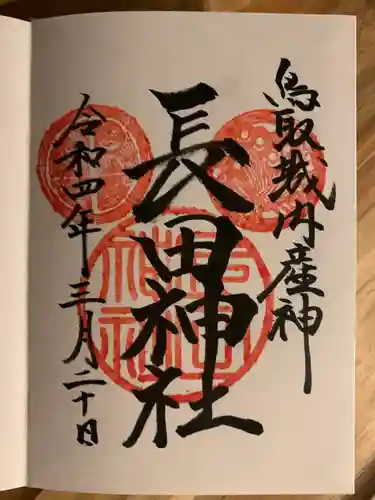 鳥取城内産神
長田神社
令和四年三月二十日
長田神社